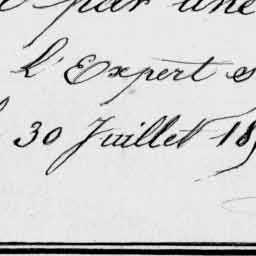 par une
L'Expert s
30 Juillet 18